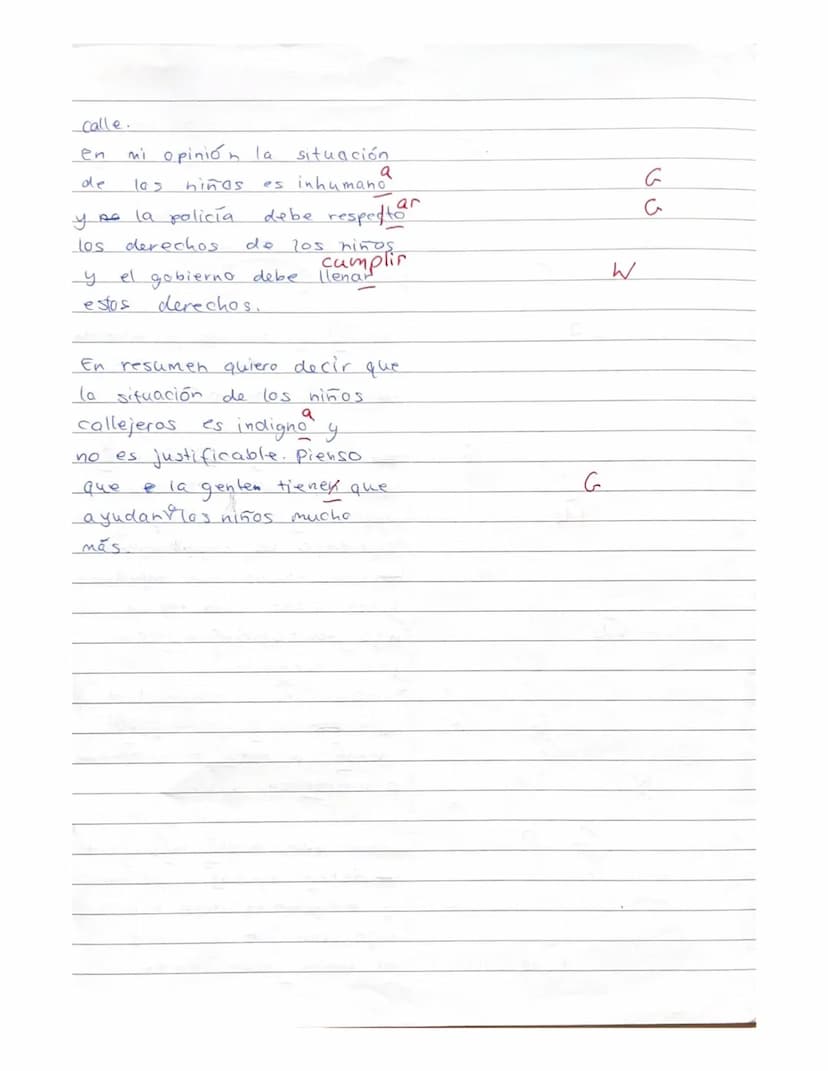 calle.
en mi opinión la situación
de los niños es inhumano a G
y la policía debe respecto ar G
los derechos de los niños
cumplir
y el gobierno debe llenar W
estos derechos.
En resumen quiero decir que
la situación de los niños
callejeros es indigno a y
no es justificable. Pienso
que la gente tienen que G
ayudan a los niños mucho
más.